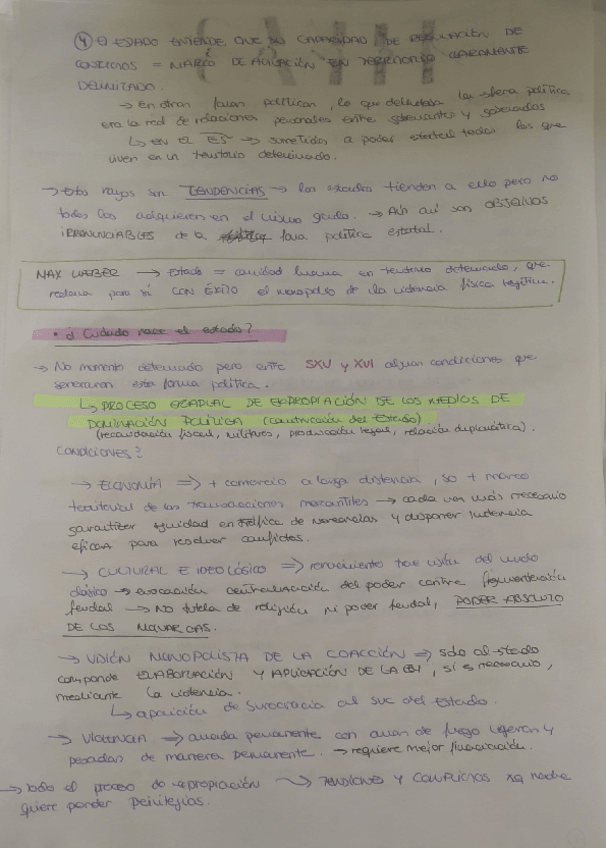 ④ El ESTADO ENTIENDE QUE SU CAPACIDAD DE REGULACIÓN DE
CONFLICTOS = MARCO DE ACTUACIÓN EN TERRITORIO CLARAMENTE
DELIMITADO.
→ En otras formas políticas, lo que delimitaba la esfera política
era la red de relaciones personales entre gobernantes y gobernados
↳ EN EL ES → sometidos a poder estatal todos los que
viven en un territorio determinado.
→ Estos rasgos son TENDENCIAS → los estados tienden a ello pero no
todos los adquieren en el mismo grado. → Aún así son OBJETIVOS
IRRENUNCIABLES de la forma política estatal.
MAX WEBER → Estado = comunidad humana en territorio determinado, que
reclama para sí CON ÉXITO el monopolio de la violencia física legítima.
• ¿Cuándo nace el estado?
→ No momento determinado pero entre SXV y XVI algunas condiciones que
generaron esta forma política.
↳ PROCESO GRADUAL DE EXPROPIACIÓN DE LOS MEDIOS DE
DOMINACIÓN POLÍTICA (construcción del Estado)
(recaudación fiscal, militares, producción legal, relación diplomática).
CONDICIONES?
→ ECONOMÍA ⇒ + comercio a larga distancia, so + marco
territorial de las transacciones mercantiles → cada vez más necesario
garantizar seguridad en tráfico de mercancías y disponer instancia
eficaz para resolver conflictos.
→ CULTURAL E IDEOLÓGICO ⇒ renacimiento trae visión del mundo
clásico → evocación centralización del poder contra fragmentación
feudal → No tutela de religión ni poder feudal, PODER ABSOLUTO
DE LOS MONARCAS.
→ VISIÓN MONOPOLISTA DE LA COACCIÓN ⇒ solo al estado
corresponde ELABORACIÓN Y APLICACIÓN DE LA LEY, si es necesario,
mediante la violencia.
↳ aparición de burocracia al svc del Estado.
→ VIOLENCIA ⇒ armada permanente con armas de fuego ligeras y
pesadas de manera permanente. → requiere mejor financiación.
→ todo el proceso de expropiación → TENSIONES Y CONFLICTOS xq nadie
quiere perder privilegios.